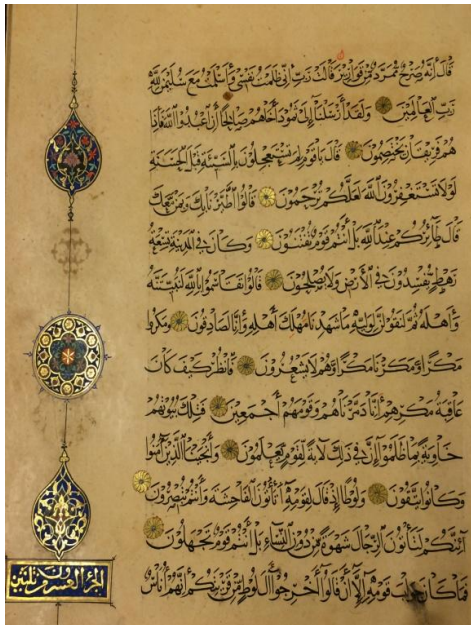 قَالَ إِنَّهُ صَرْحٌ مُمَرَّدٌ مِنْ قَوَارِيرَ قَالَتْ رَبِّ إِنِّي ظَلَمْتُ نَفْسِي وَأَسْلَمْتُ مَعَ سُلَيْمٰنَ لِلّٰهِ
رَبِّ الْعَالَمِينَ وَلَقَدْ أَرْسَلْنَا إِلَى ثَمُودَ أَخَاهُمْ صَالِحًا أَنِ اعْبُدُوا اللهَ فَإِذَا
هُمْ فَرِيقَانِ يَخْتَصِمُونَ قَالَ يَا قَوْمِ لِمَ تَسْتَعْجِلُونَ بِالسَّيِّئَةِ قَبْلَ الْحَسَنَةِ
لَوْلَا تَسْتَغْفِرُونَ اللهَ لَعَلَّكُمْ تُرْحَمُونَ قَالُوا اطَّيَّرْنَا بِكَ وَبِمَنْ مَعَكَ
قَالَ طَائِرُكُمْ عِنْدَ اللهِ بَلْ أَنْتُمْ قَوْمٌ تُفْتَنُونَ وَكَانَ فِي الْمَدِينَةِ تِسْعَةُ
رَهْطٍ يُفْسِدُونَ فِي الْأَرْضِ وَلَا يُصْلِحُونَ قَالُوا تَقَاسَمُوا بِاللهِ لَنُبَيِّتَنَّهُ
وَأَهْلَهُ ثُمَّ لَنَقُولَنَّ لِوَلِيِّهِ مَا شَهِدْنَا مَهْلِكَ أَهْلِهِ وَإِنَّا لَصَادِقُونَ وَمَكَرُوا
مَكْرًا وَمَكَرْنَا مَكْرًا وَهُمْ لَا يَشْعُرُونَ فَانْظُرْ كَيْفَ كَانَ
عَاقِبَةُ مَكْرِهِمْ أَنَّا دَمَّرْنَاهُمْ وَقَوْمَهُمْ أَجْمَعِينَ فَتِلْكَ بُيُوتُهُمْ
خَاوِيَةً بِمَا ظَلَمُوا إِنَّ فِي ذٰلِكَ لَآيَةً لِقَوْمٍ يَعْلَمُونَ وَأَنْجَيْنَا الَّذِينَ آمَنُوا
وَكَانُوا يَتَّقُونَ وَلُوطًا إِذْ قَالَ لِقَوْمِهِ أَتَأْتُونَ الْفَاحِشَةَ وَأَنْتُمْ تُبْصِرُونَ
أَئِنَّكُمْ لَتَأْتُونَ الرِّجَالَ شَهْوَةً مِنْ دُونِ النِّسَاءِ بَلْ أَنْتُمْ قَوْمٌ تَجْهَلُونَ
فَمَا كَانَ جَوَابَ قَوْمِهِ إِلَّا أَنْ قَالُوا أَخْرِجُوا آلَ لُوطٍ مِنْ قَرْيَتِكُمْ إِنَّهُمْ أُنَاسٌ
الجزء العشرون من ثلثين